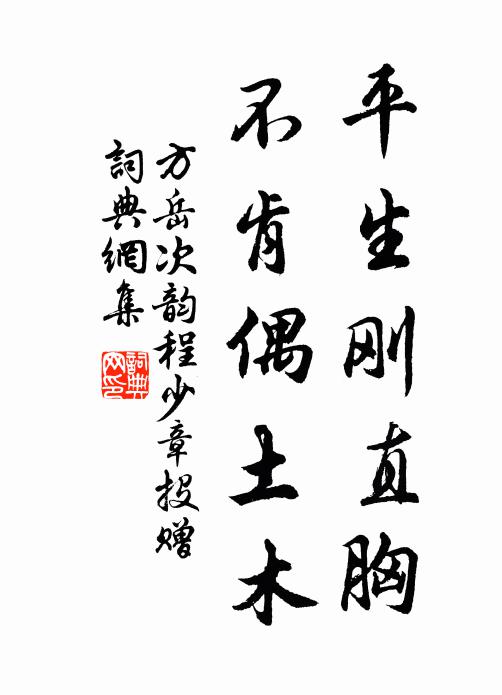 平生刚直胸
不肯偶土木
方岳次韵程少章投赠
詞典網集
詞典网印